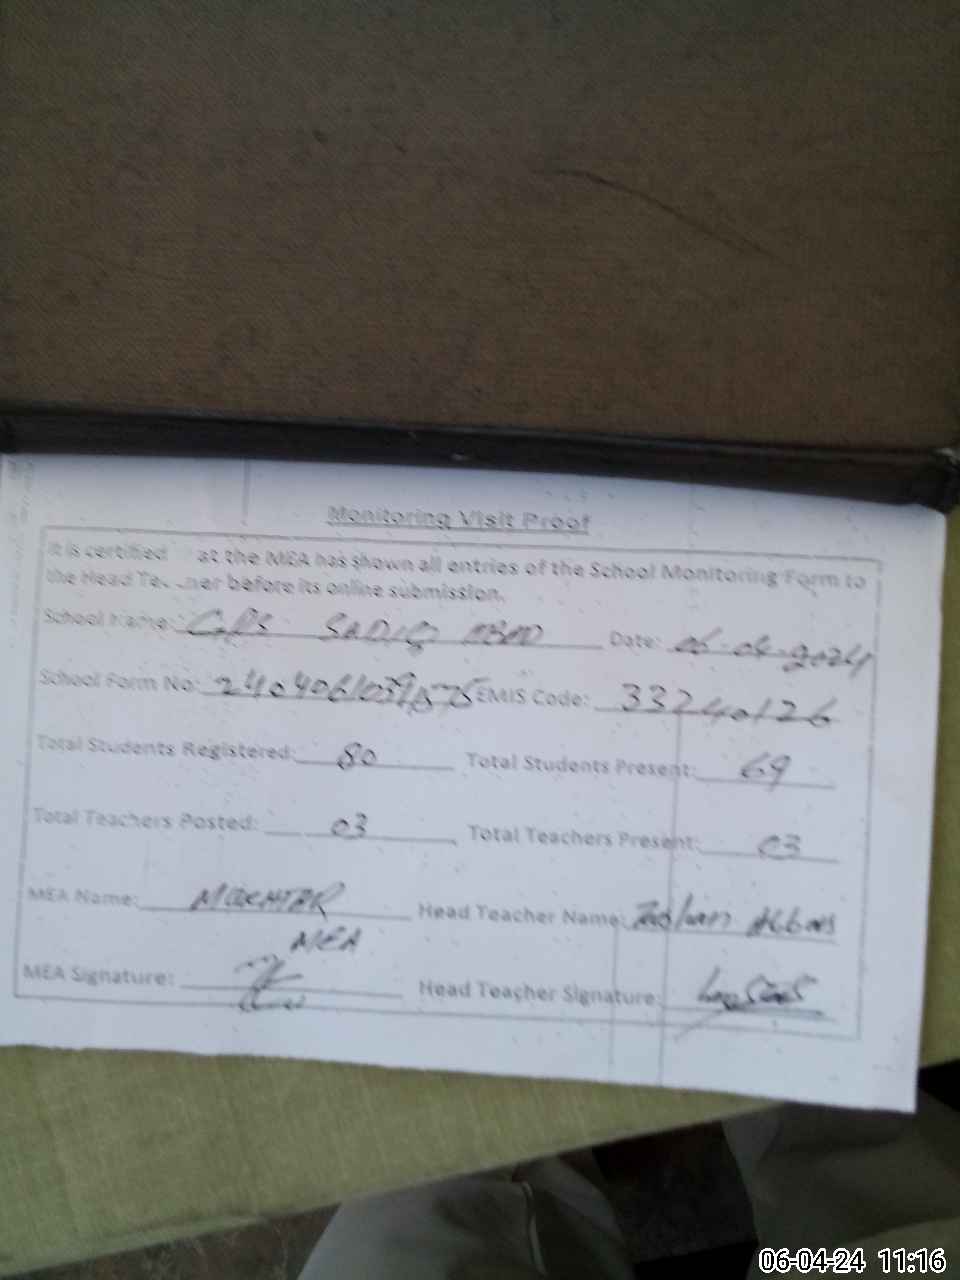 Monitoring Visit Proof
It is certified at the MEA has shown all entries of the School Monitoring Form to
the Head before its online submission.
School Name: GPS SADIQ ABAD Date: 06-04-2024
School Form No: EMIS Code: 33240126
Total Students Registered: 80 Total Students Present: 69
Total Teachers Posted: 03 Total Teachers Present: 03
MEA Name: MUKHTAR Head Teacher Name: Abbas
MEA
MEA Signature: Head Teacher Signature:
06-04-24 11:16